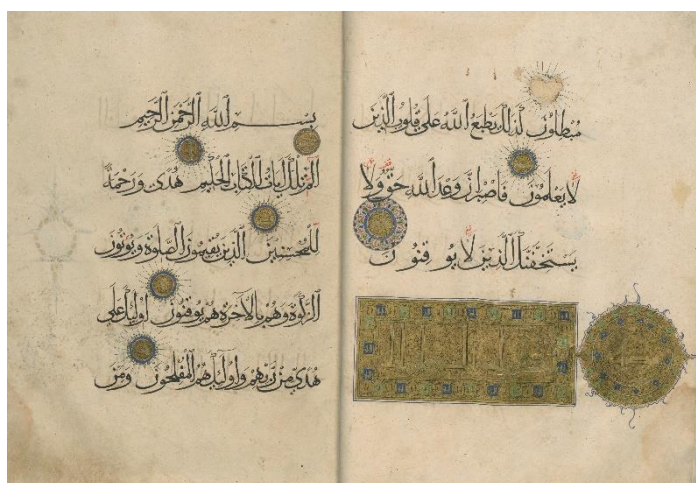 مُبْطِلُونَ كَذَٰلِكَ يَطْبَعُ اللَّهُ عَلَى قُلُوبِ الَّذِينَ
لَا يَعْلَمُونَ فَاصْبِرْ إِنَّ وَعْدَ اللَّهِ حَقٌّ وَلَا
يَسْتَخِفَّنَّكَ الَّذِينَ لَا يُوقِنُونَ
بِسْمِ اللَّهِ الرَّحْمَٰنِ الرَّحِيمِ
الم تِلْكَ آيَاتُ الْكِتَابِ الْحَكِيمِ هُدًى وَرَحْمَةً
لِلْمُحْسِنِينَ الَّذِينَ يُقِيمُونَ الصَّلَوةَ وَيُؤْتُونَ
الزَّكَوةَ وَهُمْ بِالْآخِرَةِ هُمْ يُوقِنُونَ أُولَٰئِكَ عَلَى
هُدًى مِنْ رَبِّهِمْ وَأُولَٰئِكَ هُمُ الْمُفْلِحُونَ وَمِنَ